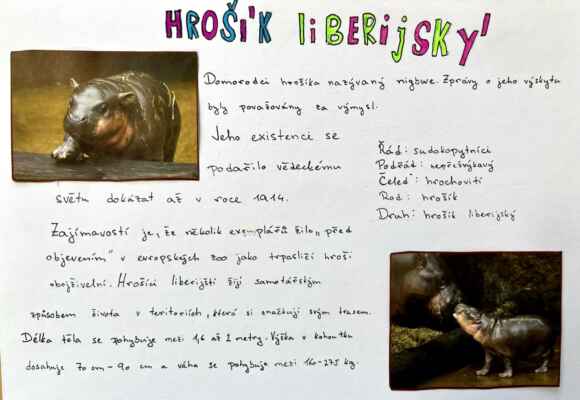 HROŠÍK LIBERIJSKÝ
Domorodci hrošíka nazývaný nigbwe. Zprávy o jeho výskytu
byly považovány za výmysl.
Jeho existenci se
podařilo vědeckému
světu dokázat až v roce 1914.
Řád: sudokopytníci
Podřád: nepřežvýkavý
Čeleď: hrochovití
Rod: hrošík
Druh: hrošík liberijský
Zajímavostí je, že několik exemplářů žilo „před
objevením" v evropských zoo jako trpasličí hroši
obojživelní. Hrošíci liberijští žijí samotářským
způsobem života v teritoriích, která si značkují svým trusem.
Délka těla se pohybuje mezi 1,6 až 2 metry. Výška v kohoutku
dosahuje 70 cm - 90 cm a váha se pohybuje mezi 160-275 kg.